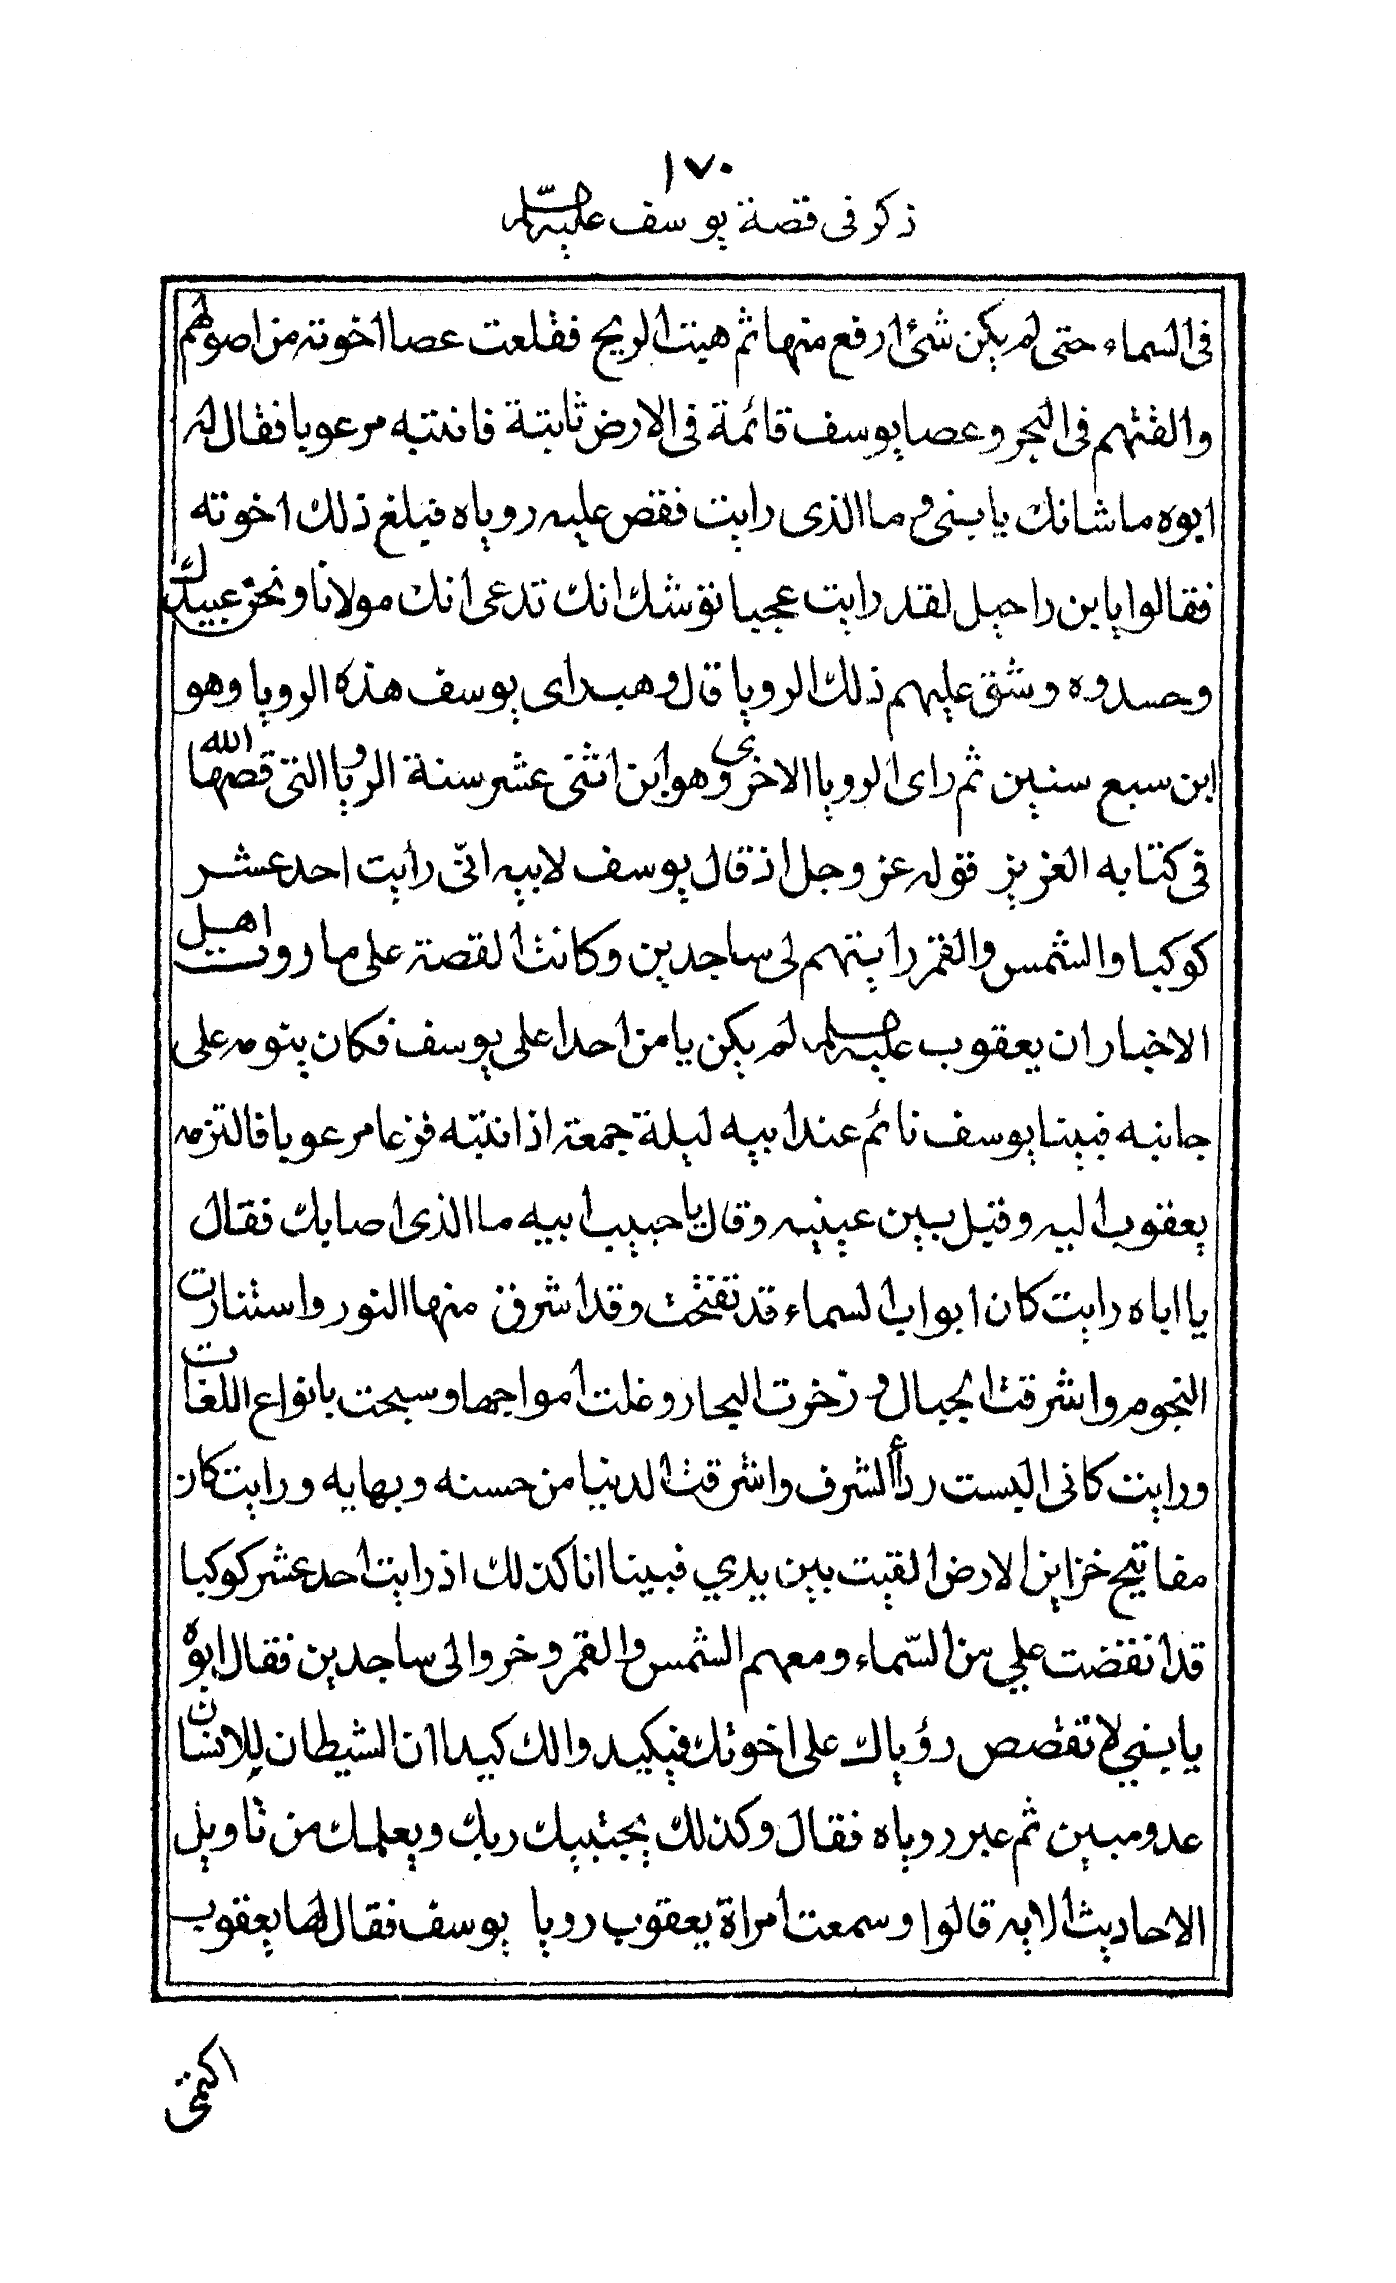 ١٧٠
ذكر فى قصة يوسف عليه صلم
فى السماء حتى لم يكن شئ ارفع منها ثم هبت الريح فقلعت عصا اخوته من اصولهم
والقتهم فى البحر وعصا يوسف قائمة فى الارض ثابتة فانتبه مرعوبا فقال له
ابوه ما شانك يا بنى وما الذى رايت فقص عليه روياه فبلغ ذلك اخوته
فقالوا يا بن راحيل لقد رايت عجبا توشك انك تدعى انك مولانا ونحن عبيدك
وحسدوه وشق عليهم ذلك الرويا قال وهب راى يوسف هذه الرويا وهو
ابن سبع سنين ثم راى الرويا الاخرى وهو ابن اثنتى عشر سنة الرويا التى قصها الله
فى كتابه العزيز قوله عز وجل اذ قال يوسف لابيه انّى رايت احد عشر
كوكبا والشمس والقمر رايتهم لى ساجدين وكانت القصة على ما روت اهل
الاخبار ان يعقوب عليه صلم لم يكن يامن احدا على يوسف فكان ينومه على
جانبه فبينا يوسف نائم عند ابيه ليلة جمعة اذ انتبه فزعا مرعوبا فالتزمه
يعقوب اليه وقبل بين عينيه وقال يا حبيب ابيه ما الذى اصابك فقال
يا اباه رايت كان ابواب السماء قد تفتحت وقد اشرق منها النور واستنارت
النجوم واشرقت الجبال و زخرت البحار وغلت امواجها وسبحت بانواع اللغات
ورايت كانى البست ردأ الشرف واشرقت الدنيا من حسنه وبهايه ورايت كان
مفاتيح خزاين الارض القيت بين يدي فبينا انا كذلك اذ رايت احد عشر كوكبا
قد انقضت علي من السّماء ومعهم الشمس والقمر وخروا لى ساجدين فقال ابوه
يا بنيي لا تقصص رؤياك على اخوتك فيكيد والك كيدا ان الشيطان للانسان
عدو مبين ثم عبر روياه فقال وكذلك يجتبيك ربك ويعلمك من تاويل
الاحاديث الايه قالوا وسمعت امراة يعقوب رويا يوسف فقال لها يعقوب
اكتمى